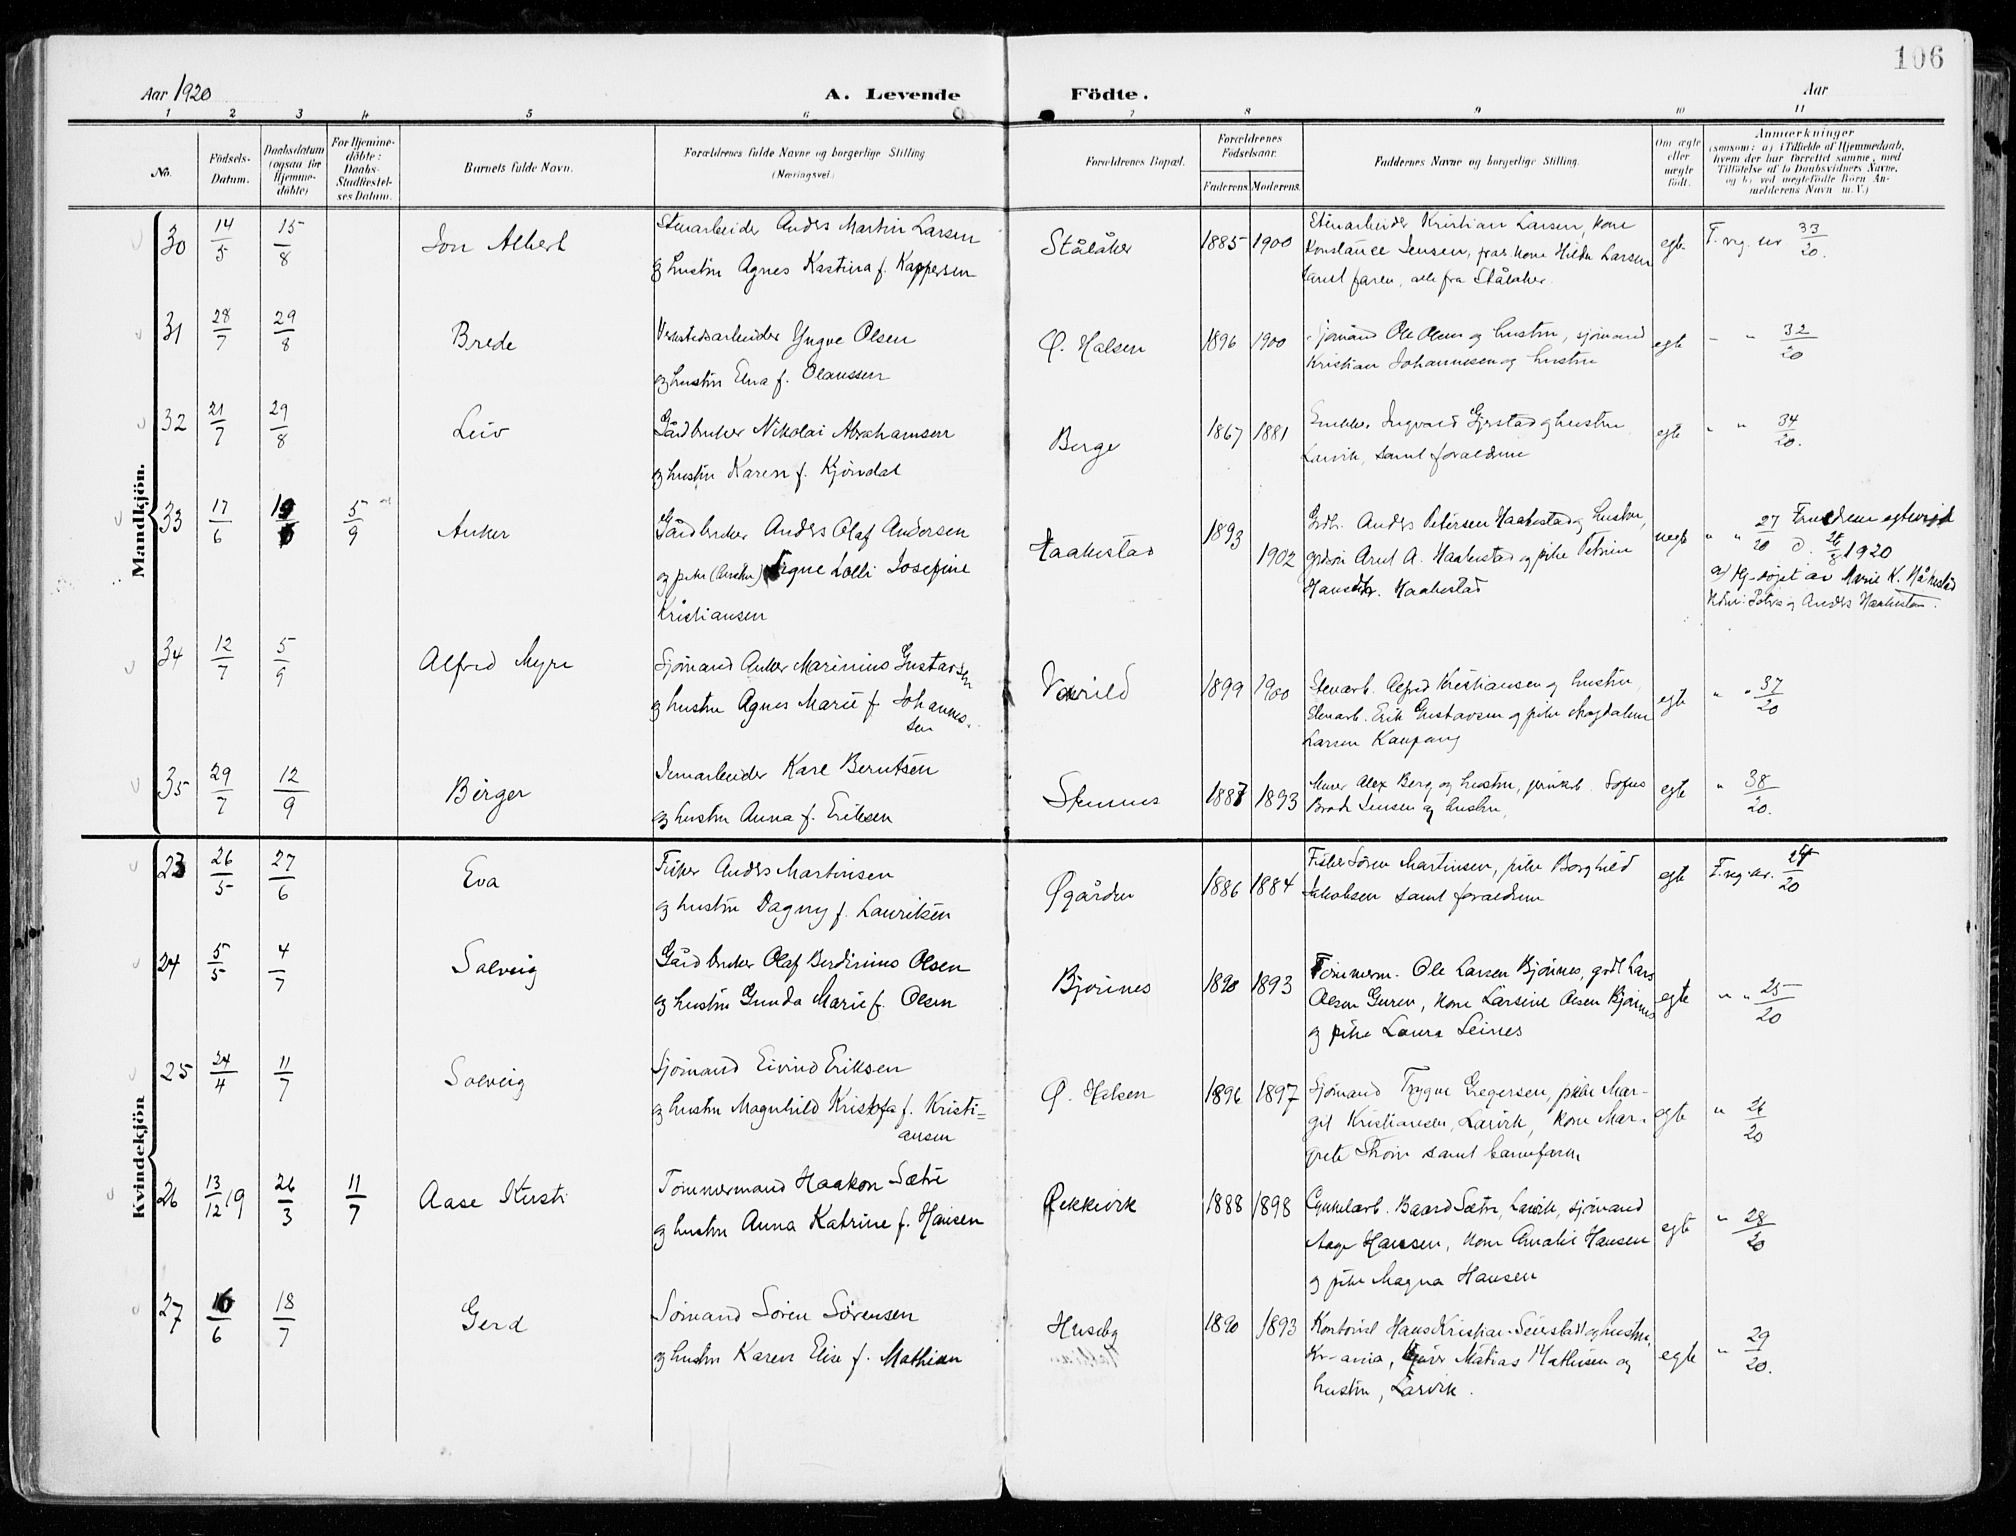 106
Aar 1920
A. Levende Födte.
Aar
1 2 3 4 5 6 7 8 9 10 11
No.
Födsels-Datum.
Daabsdatum (ogsaa for Hjemme-döbte)
For Hjemme-döbte: Daabs-Stadfæstel-ses Datum.
Barnets fulde Navn.
Forældrenes fulde Navne og borgerlige Stilling (Næringsvei)
Forældrenes Bopæl.
Forældrenes Födselsaar.
Faderens. Moderens.
Faddernes Navne og borgerlige Stilling.
Om ægte eller uægte födt.
Anmærkninger
(saasom: a) i Tilfælde af Hjemmedaab, hvem der har forrettet samme, med Tilföielse af to Daabsvidners Navne, og b) ved uægtefödte Börn An-melderens Navn m. V.)
Mandkjön.
30 14/5 15/8 Jon Albert
Stenarbeider Anders Martin Larsen
og hustru Agnes Kastina f. Kaspersen
Ståláker 1885 1900
Stenarbeider Kristian Larsen, kone
Konstance Jensen, kone Hilda Larsen
samt faren, alle fra Ståláker.
egte F. reg. nr 33/20.
31 28/7 29/8 Brede
Verkstedsarbeider Yngve Olsen
og hustru Elna f. Olaussen
Ø. Halsen 1896 1900
Sjømand Ole Olsen og hustru, sjømand
Kristian Johannessen og hustru
egte " " 32/20
32 21/7 29/8 Leiv
Gårdbruker Nikolai Abrahamsen
og hustru Karen f. Kjøndal
Berge 1867 1881
Ingvald Gjerstad og hustru
Larvik, samt forældrene
egte " " 34/20.
33 17/6 5/9 Anker
Gårdbruker Anders Olaf Andersen
og pike Signe Lolli Josefine
Kristiansen
Haakestad 1893 1902
Grdb. Anders Petersen Haakestad og hustru,
Arnt A. Haakestad og pike Petrine
Hansen. Haakestad
uegte " " 27/20
1920
a) Hj. døpt av Marie K. Håkestad
og Anders Haakestad.
34 12/7 5/9 Alfred Myre
Sjømand Anker Marinius Gustavsen
og hustru Agnes Marie f. Johannes-
sen
Varild 1899 1900
Stenarb. Alfred Kristiansen og hustru,
Stenarb. Erik Gustavsen og pike Magdalene
Larsen Kaupang
egte " " 37/20
35 29/7 12/9 Birger
Jernarbeider Karl Berntsen
og hustru Anna f. Eriksen
Stennes 1887 1893
Murer Alex Berg og hustru, jernarb. Sofus
Jensen og hustru,
egte " 38/20.
Kvindekjön
23 26/5 27/6 Eva
Fisker Anders Martinsen
og hustru Dagny f. Lauritsen
Øgården 1886 1884
Fisker Søren Martinsen, pike Borghild
Jakobsen samt forældrene
egte F. reg. nr. 24/20
24 5/5 4/7 Solveig
Gårdbruker Olaf Berdinius Olsen
og hustru Gunda Marie f. Olsen
Bjørnes 1890 1893
Tømmerm. Ole Larsen Bjønnes, grdb Lars
Olsen Guren, kone Larsine Olsen Bjønnes
og pike Laura Seines
egte " " 25/20
25 24/4 11/7 Solveig
Sjømand Eivind Eriksen
og hustru Magnhild Kristofa f. Kristi-
ansen
Ø. Halsen 1896 1897
Sjømand Trygve Gregersen, pike Mar-
git Kristiansen, Larvik, kone Mar-
grete Thom samt barnefaren
egte " 26/20
26 13/12 19 26/3 11/7 Aase Kirsti
Tømmermand Haakon Sætre
og hustru Anna Katrine f. Hansen
Rekkevik 1888 1898
Cykkelarb. Baard Sætre, Larvik, sjømand
Aage Hansen, kone Amalie Hansen
og pike Magna Hansen
egte " 28/20
27 16/6 18/7 Gerd
Sømand Søren Sørensen
og hustru Karen Elise f. Mathisen
Huseby 1890 1893
Kontorist Hans Kristian Seierstad og hustru,
Kr-ania, Matias Mathisen og
hustru, Larvik.
egte " 29/20.